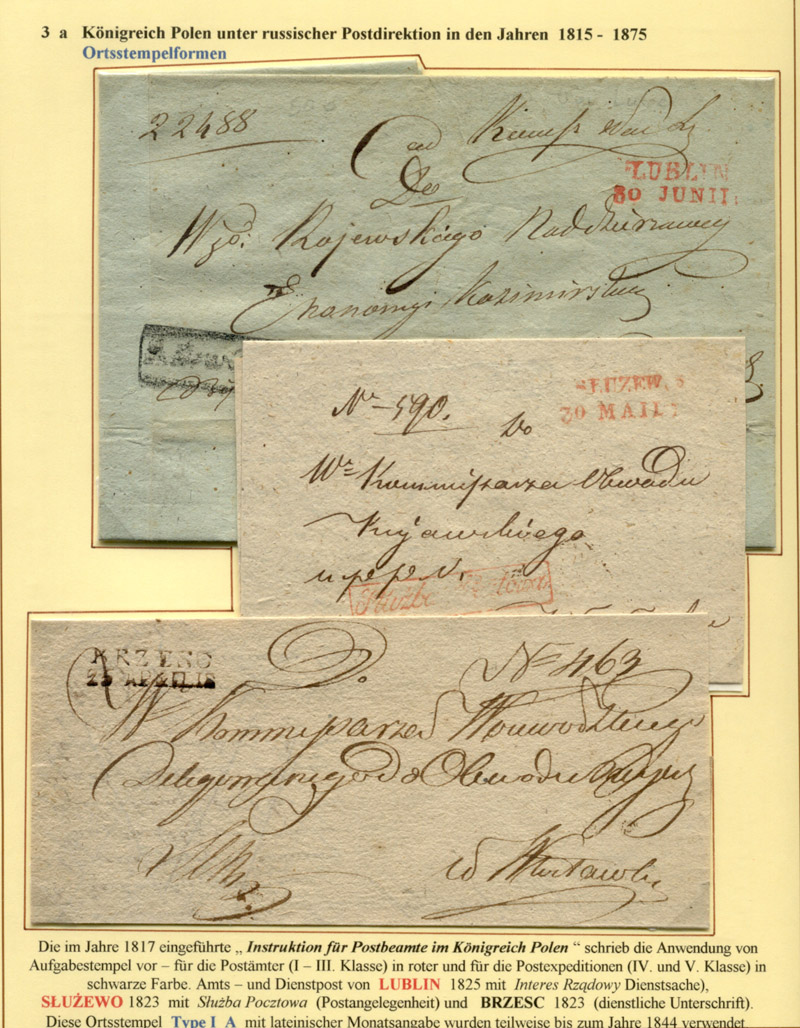 3 a Königreich Polen unter russischer Postdirektion in den Jahren 1815 - 1875
Ortsstempelformen
22488
LUBLIN
30 JUNII
Do
Wgo: Rajewskiego Naddzierzawcy
Ekonomyi Kazimirskiey
SŁUZEWO
30 MAII
No 590.
Do
Wo Kommissarza Obwodu
Kujawskiego
Służba
BRZESC
25 APRILIS
D.
No 463
W Kommissarza Woiewodzkiego
Delegowanego do Obwodu
w
Die im Jahre 1817 eingeführte „ Instruktion für Postbeamte im Königreich Polen “ schrieb die Anwendung von
Aufgabestempel vor – für die Postämter (I – III. Klasse) in roter und für die Postexpeditionen (IV. und V. Klasse) in
schwarze Farbe. Amts – und Dienstpost von LUBLIN 1825 mit Interes Rządowy Dienstsache),
SŁUŻEWO 1823 mit Służba Pocztowa (Postangelegenheit) und BRZESC 1823 (dienstliche Unterschrift).
Diese Ortsstempel Type I A mit lateinischer Monatsangabe wurden teilweise bis zum Jahre 1844 verwendet.